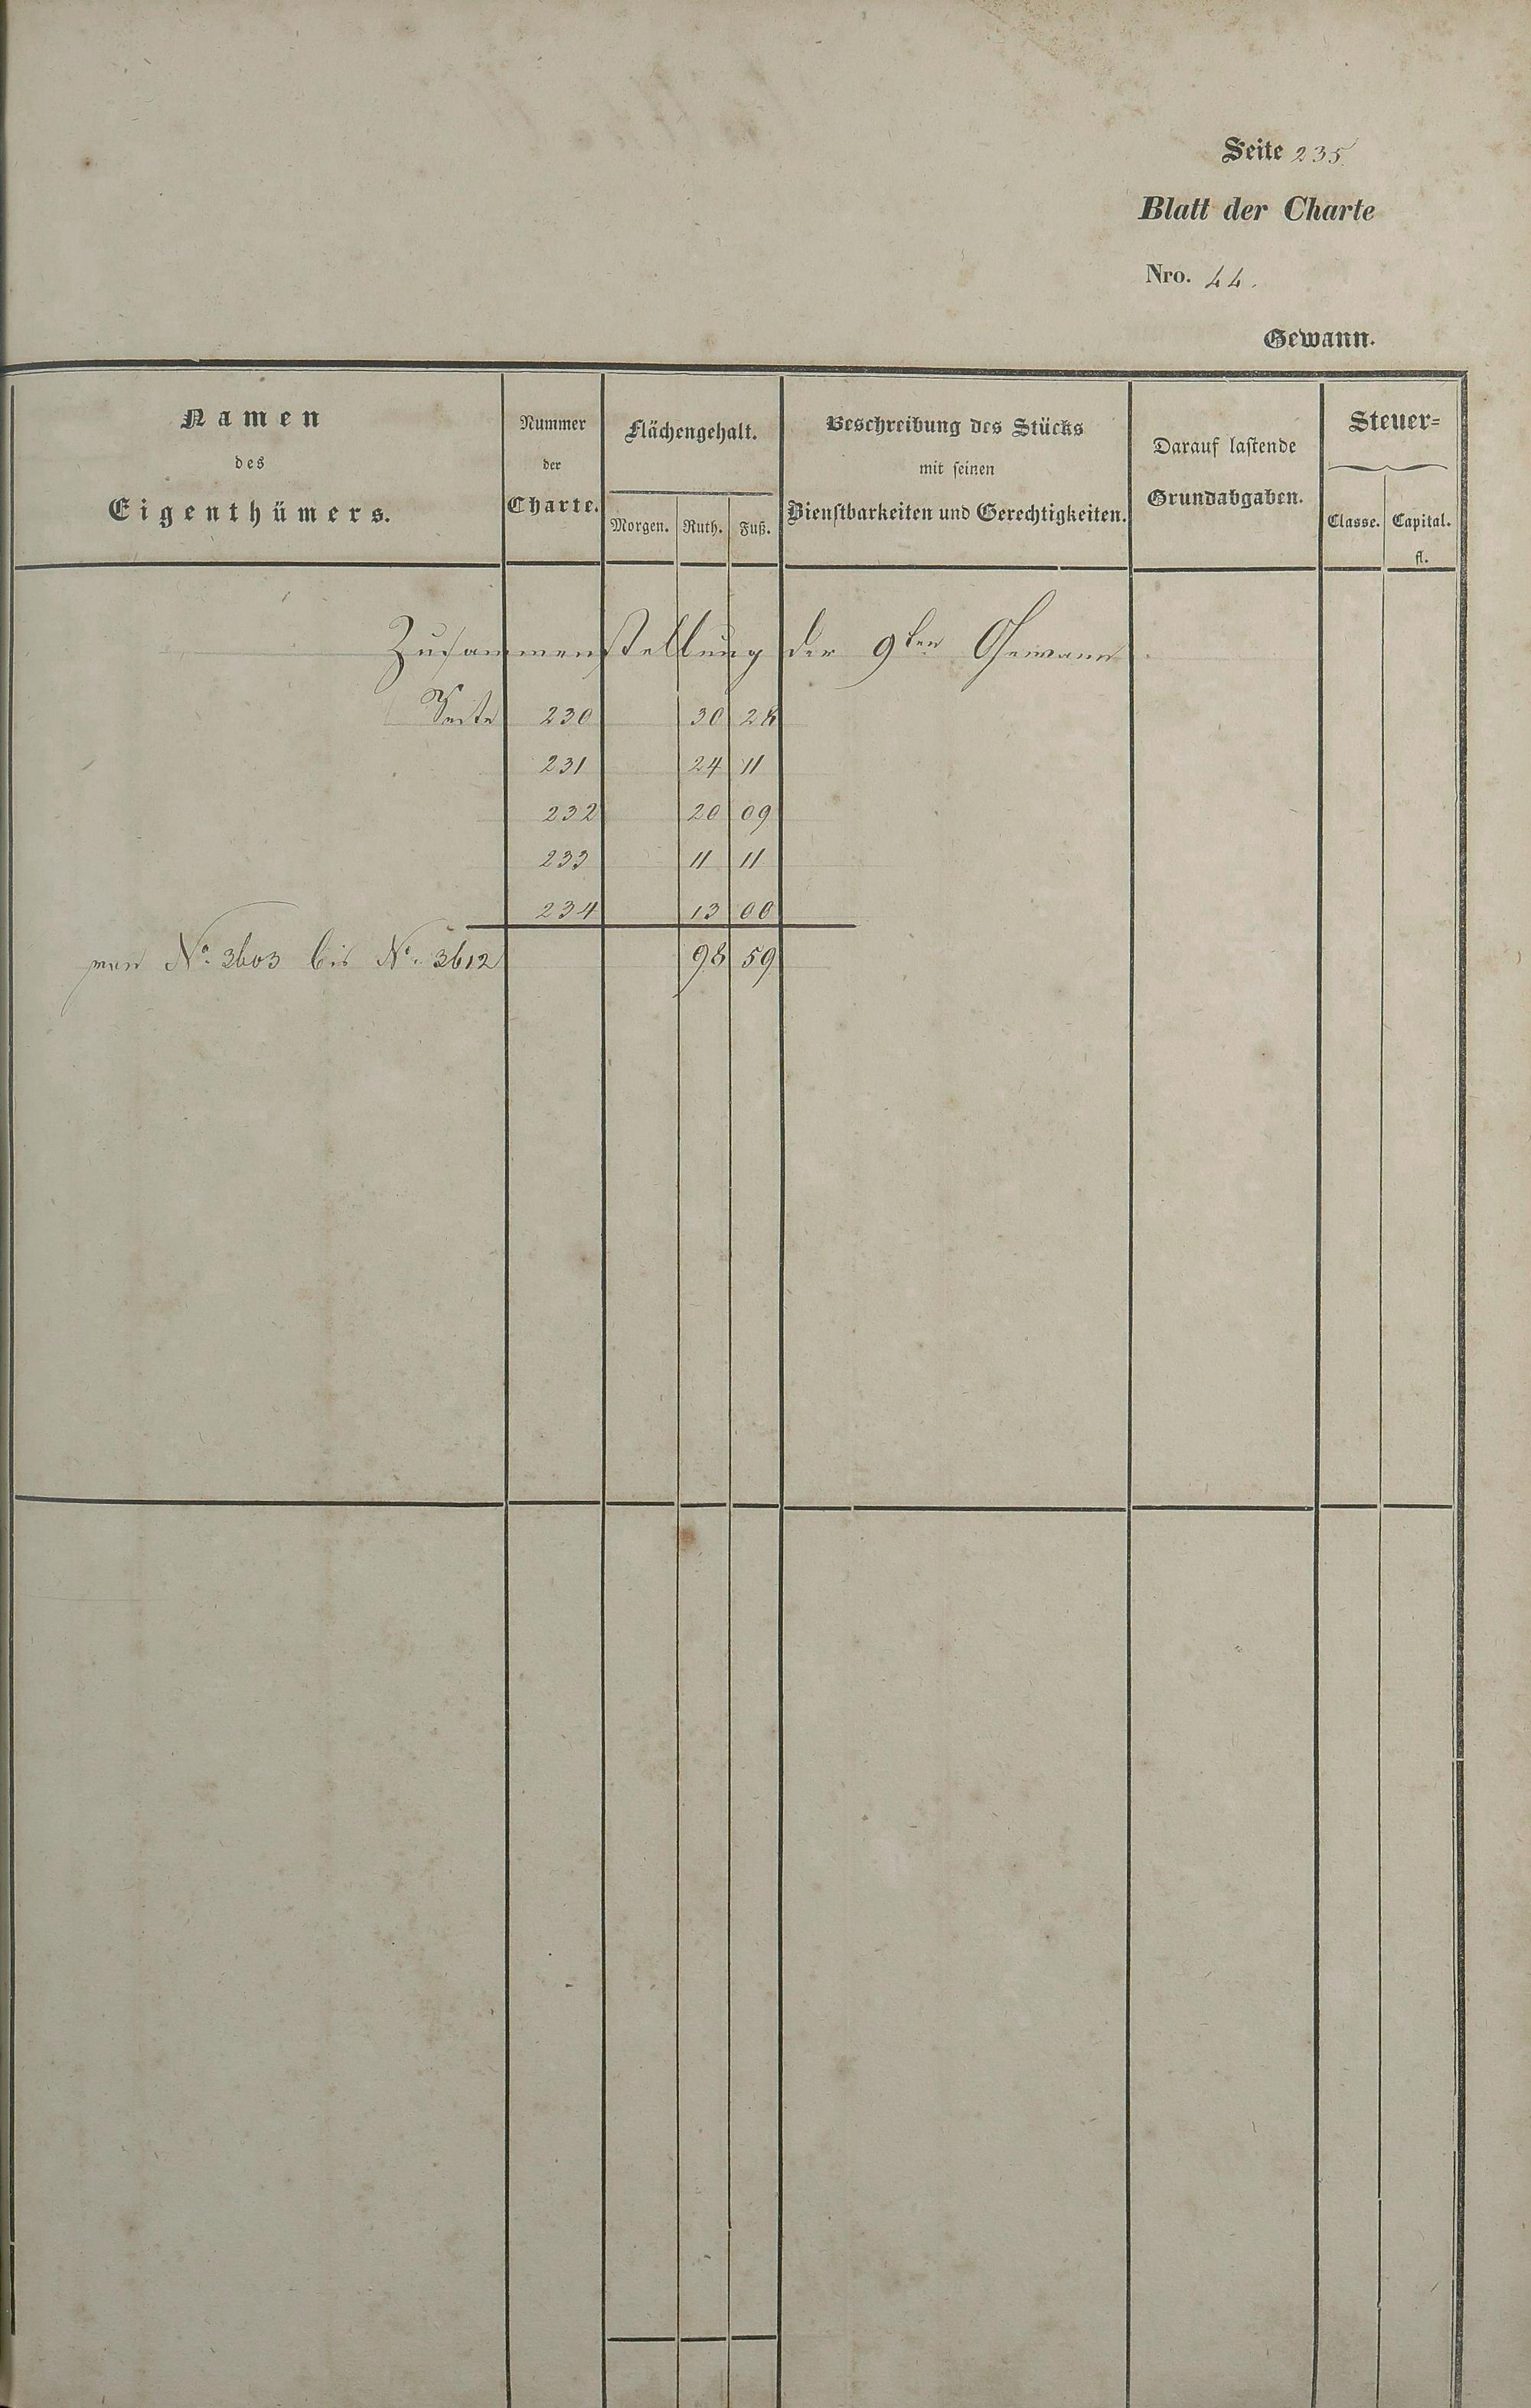 Seite 235
Blatt der Charte
Nro. 44.
Gewann.
Namen
des
Eigenthümers.
Nummer
der
Charte.
Flächengehalt.
Morgen. Ruth. Fuß.
Beschreibung des Stücks
mit seinen
Dienstbarkeiten und Gerechtigkeiten.
Darauf lastende
Grundabgaben.
Steuer-
Classe. Capital.
fl.
Zusammenstellung der 9ten Gewann
Seite 230 30 28
231 24 11
232 20 09
233 11 11
234 13 00
von No. 3603 bis No. 3612 98 59